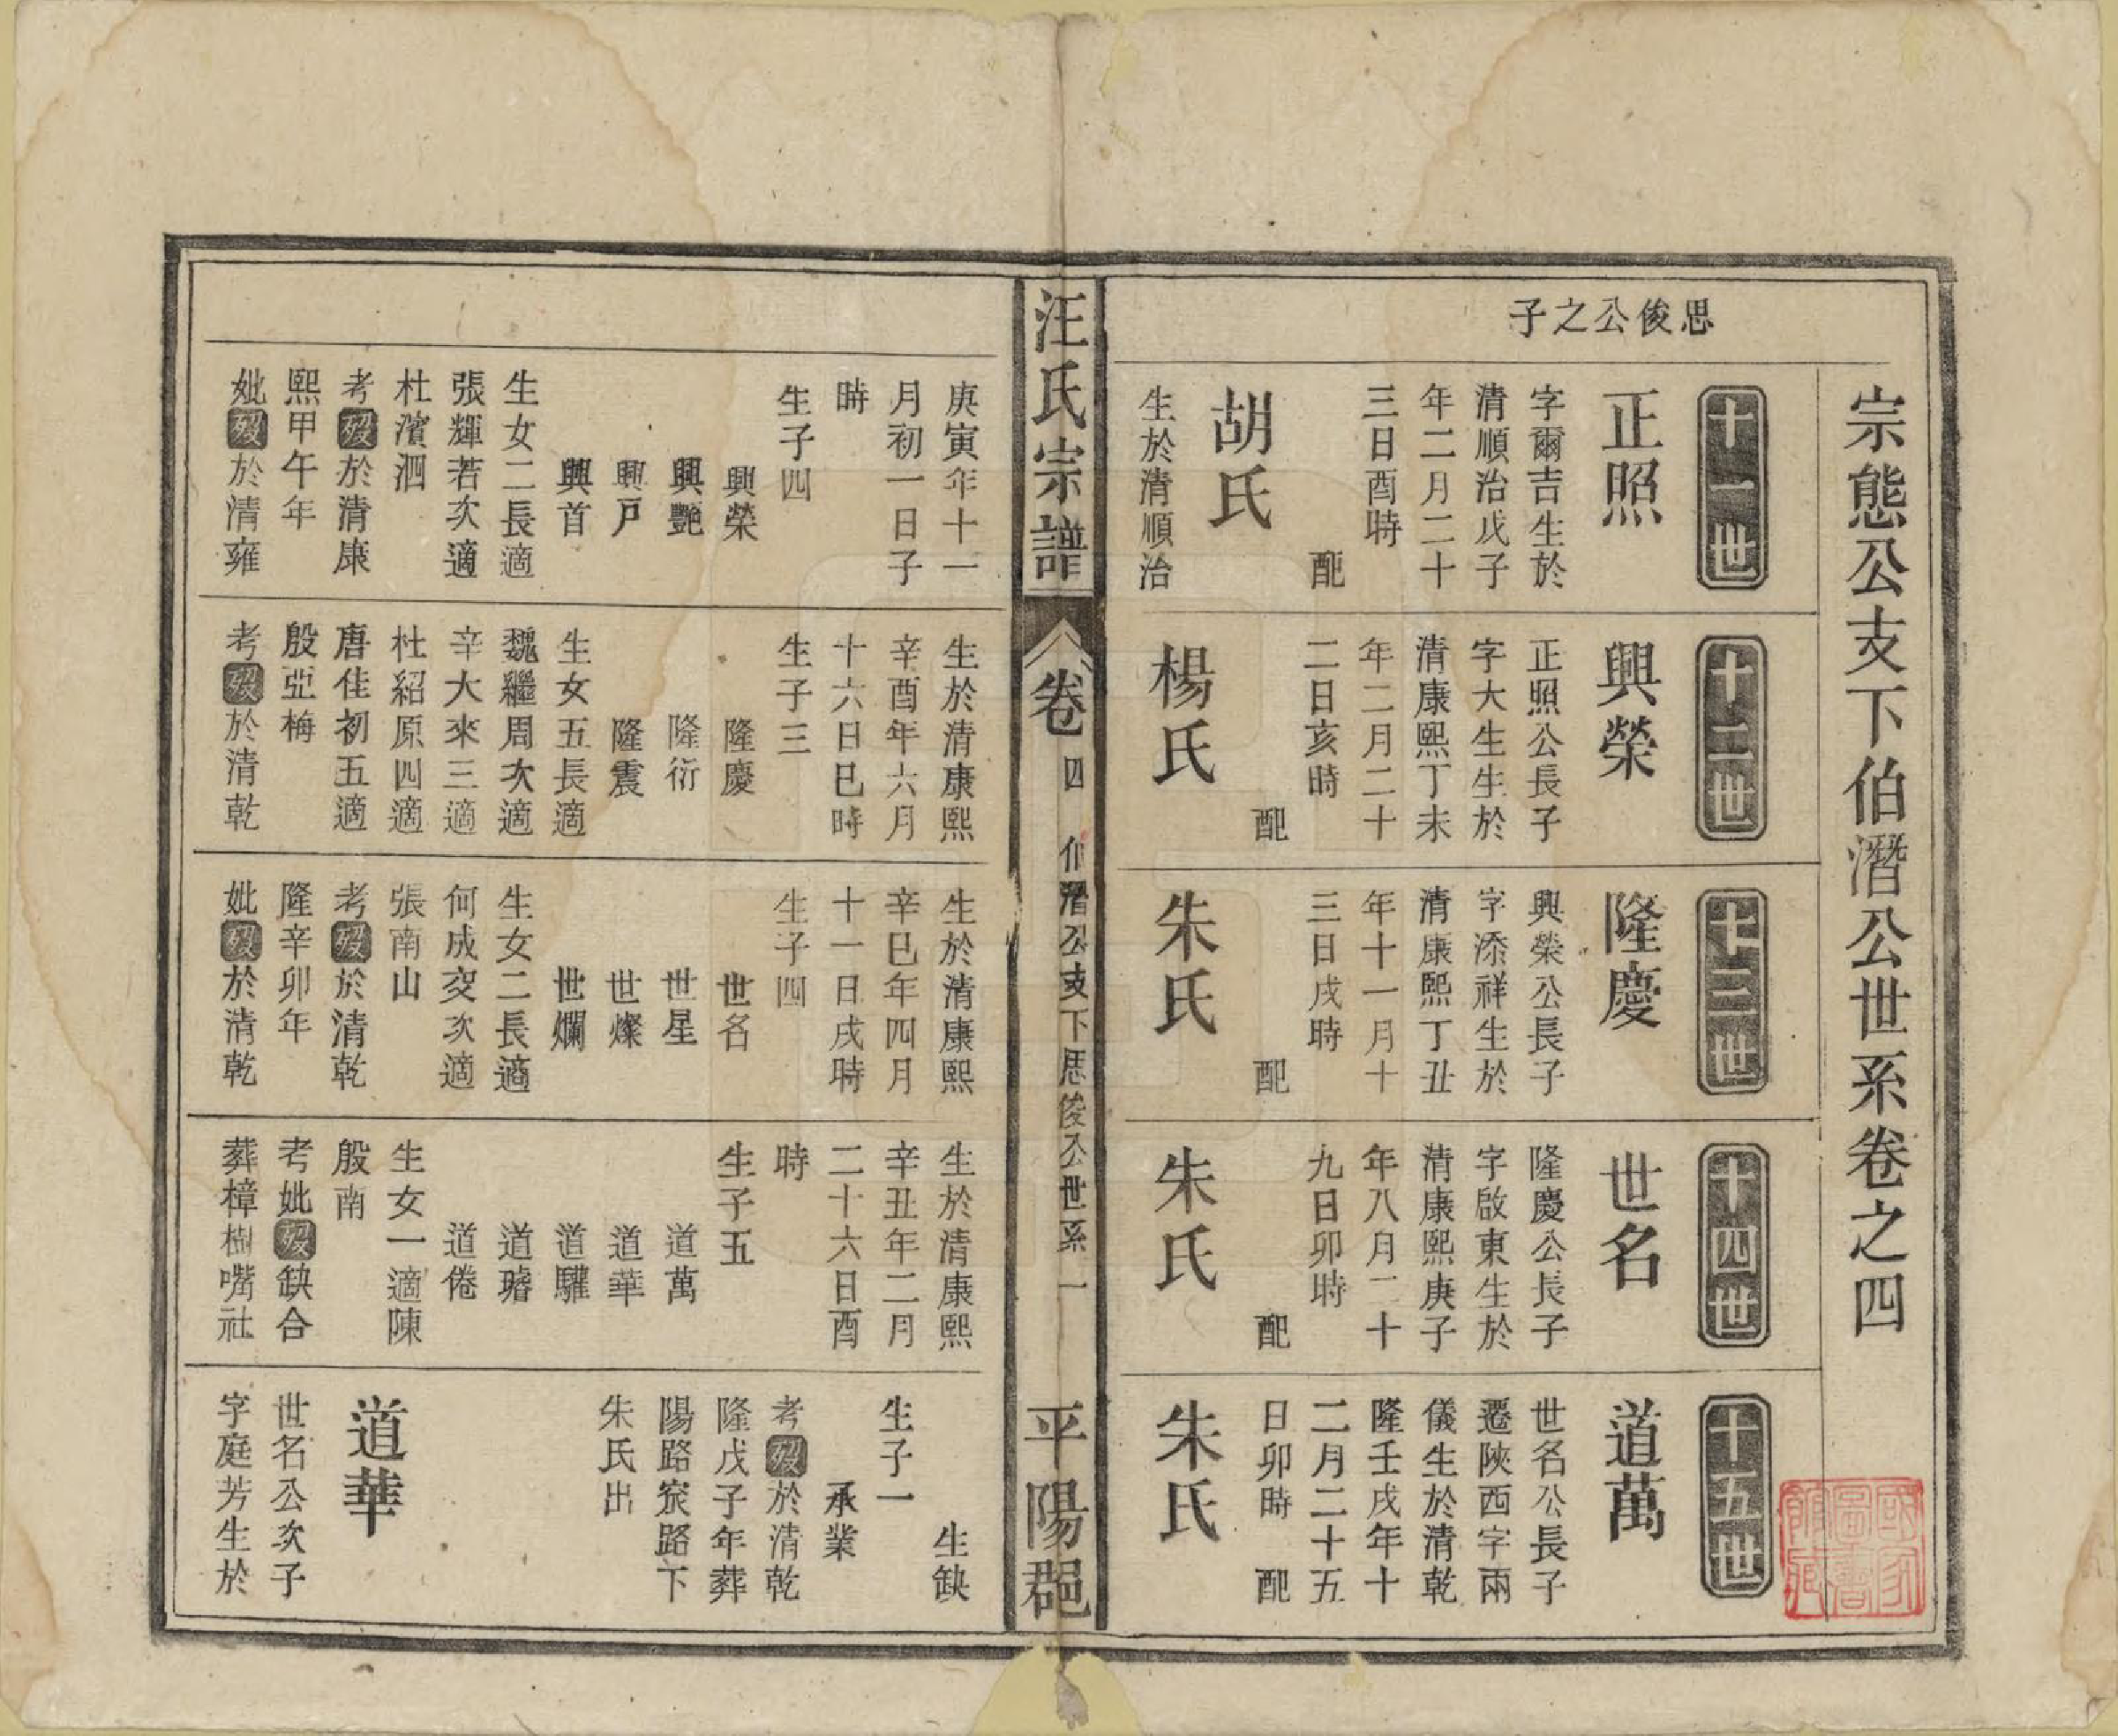 宗態公支下伯潛公世系卷之四
思俊公之子
十一世
正照
字爾吉生於
清順治戊子
年二月二十
三日酉時
配
胡氏
生於清順治
十二世
興榮
正照公長子
字大生生於
清康熙丁未
年二月二十
二日亥時
配
楊氏
十三世
隆慶
興榮公長子
字添祥生於
清康熙丁丑
年十一月十
三日戌時
配
朱氏
十四世
世名
隆慶公長子
字啟東生於
清康熙庚子
年八月二十
九日卯時
配
朱氏
十五世
道萬
世名公長子
遷陝西字兩
儀生於清乾
隆壬戌年十
二月二十五
日卯時
配
朱氏
汪氏宗譜
卷四
伯潛公支下思俊公世系一
平陽郡
庚寅年十一
月初一日子
時
生子四
興榮
興艷
興戶
興首
生女二長適
張輝若次適
杜濱泗
考歿於清康
熙甲午年
妣歿於清雍
生於清康熙
辛酉年六月
十六日巳時
生子三
隆慶
隆衍
隆震
生女五長適
魏繼周次適
辛大來三適
杜紹原四適
唐佳初五適
殷亞梅
考歿於清乾
生於清康熙
辛巳年四月
十一日戌時
生子四
世名
世星
世燦
世爛
生女二長適
何成variant次適
張南山
考歿於清乾
隆辛卯年
妣歿於清乾
生於清康熙
辛丑年二月
二十六日酉
時
生子五
道萬
道華
道驊
道璿
道倦
生女一適陳
殷南
考妣歿缺合
葬樟樹嘴社
生缺
生子一
承業
考歿於清乾
隆戊子年葬
陽路寮路下
朱氏出
道華
世名公次子
字庭芳生於